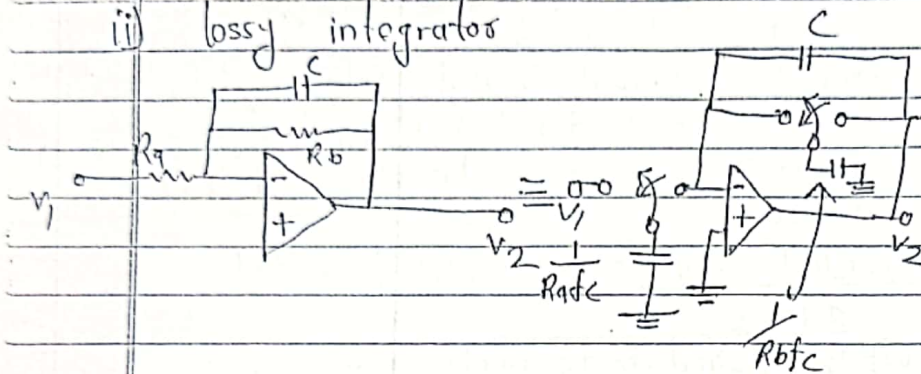 ii) lossy integrator
C
C
Ra
Rb
-
+
V1
V2
≡
V1
1
Rafc
-
+
V2
1
Rbfc